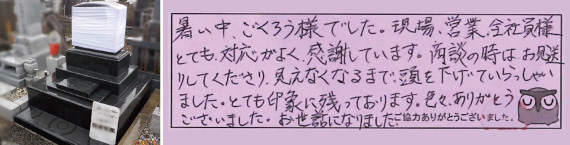 暑い中、ごくろう様でした。現場、営業、会社員様
とても、対応がよく、感謝しています。商談の時はお見送
りしてくださり、見えなくなるまで、頭を下げていらっしゃい
ました。とても印象に残っております。色々、ありがとう
ございました。お世話になりました。
ご協力ありがとうございました。